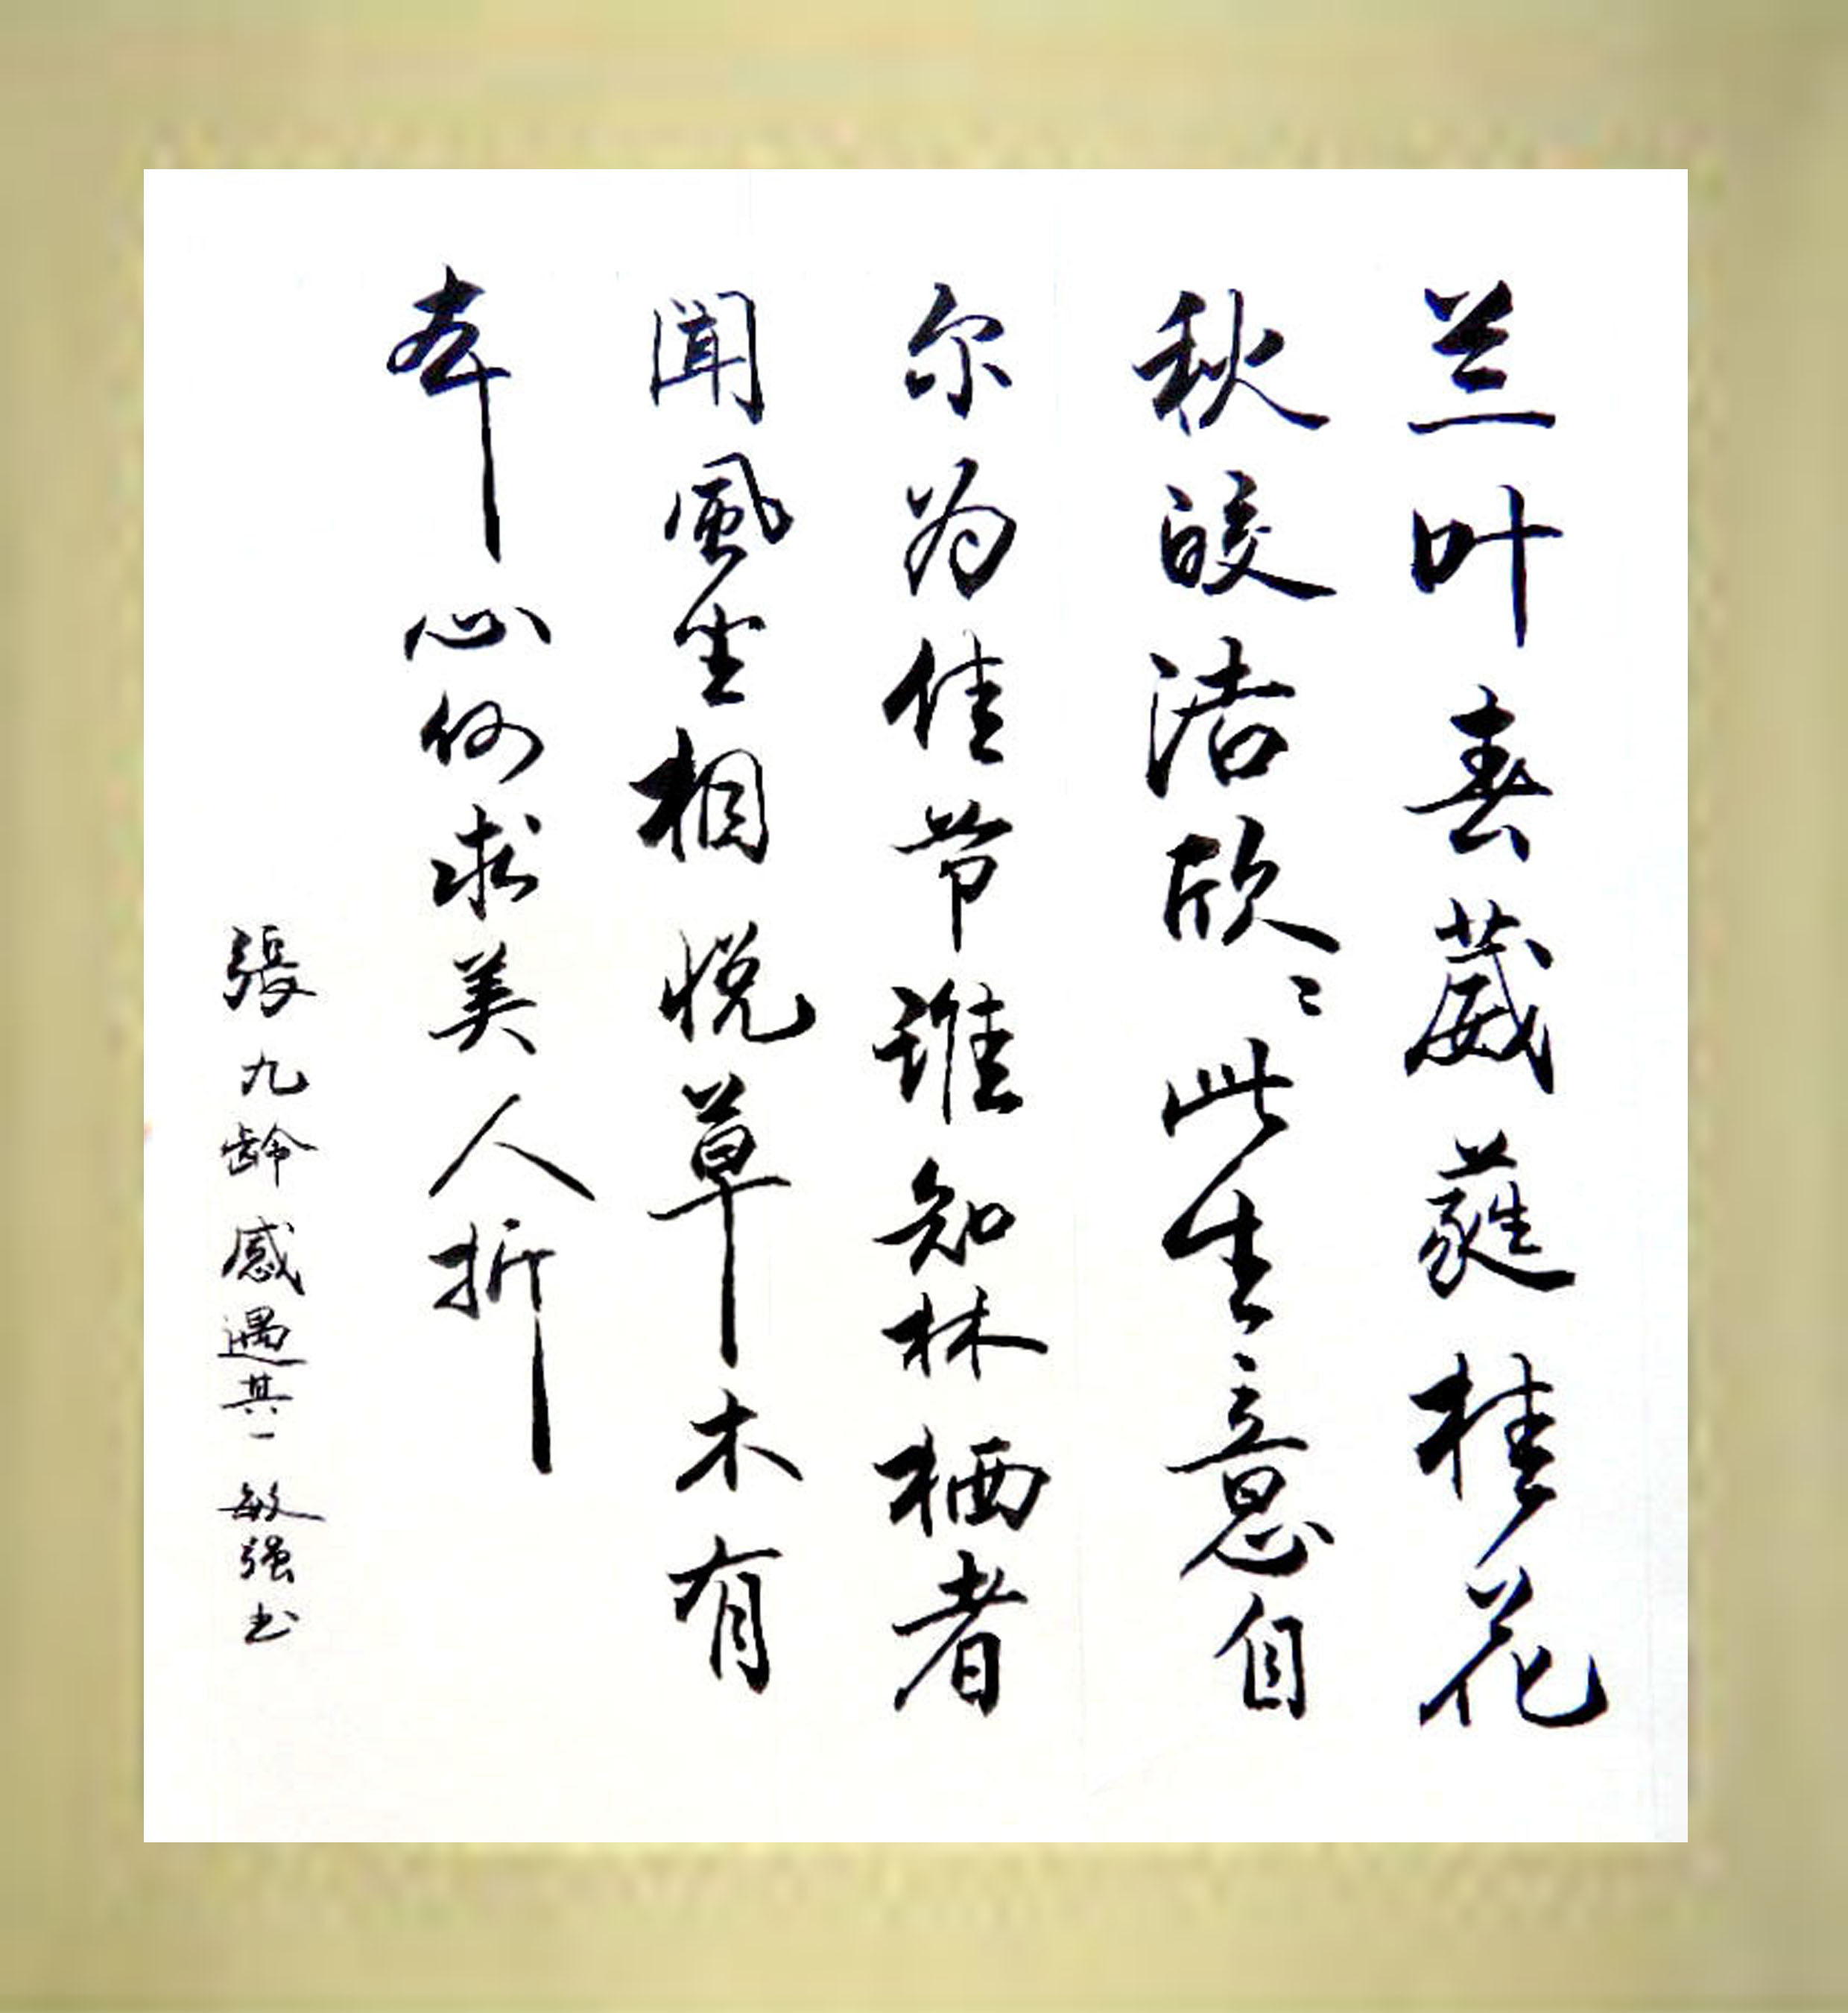 兰叶春葳蕤桂花
秋皎洁欣々此生意自
尔为佳节谁知林栖者
闻風坐相悦草木有
本心何求美人折
張九龄感遇其一敏强书